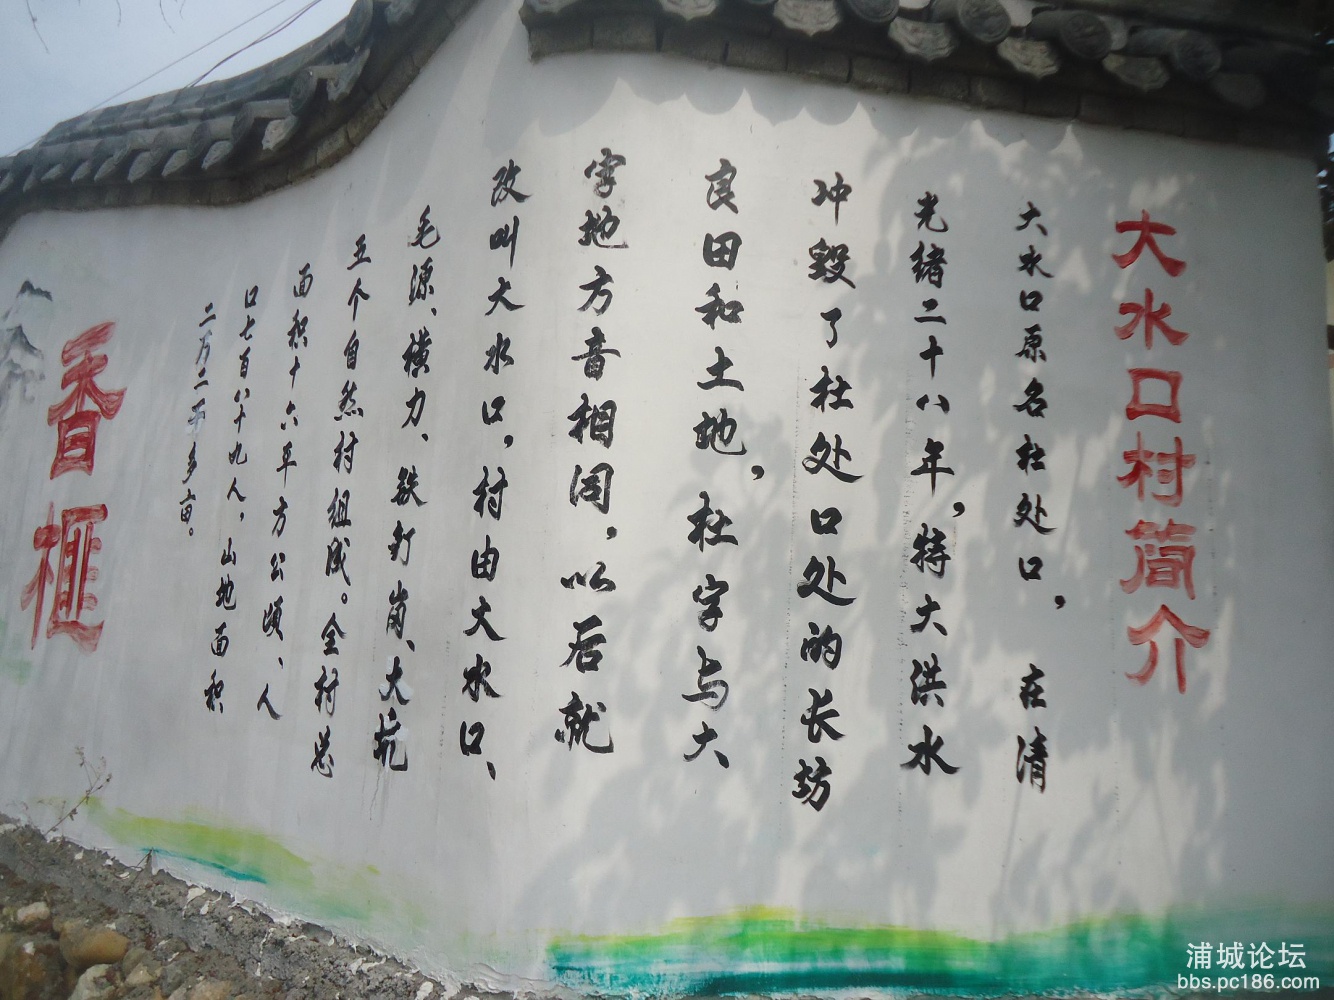 大水口村简介
大水口原名杜处口，在清
光绪二十八年，特大洪水
冲毁了杜处口处的长坊
良田和土地，杜字与大
字地方音相同，以后就
改叫大水口，村由大水口、
毛源、横力、铁打岗、大坑
五个自然村组成。全村总
面积十六平方公顷、人
口七百八十九人，山地面积
二万二千多亩。
香榧
浦城论坛
bbs.pc186.com